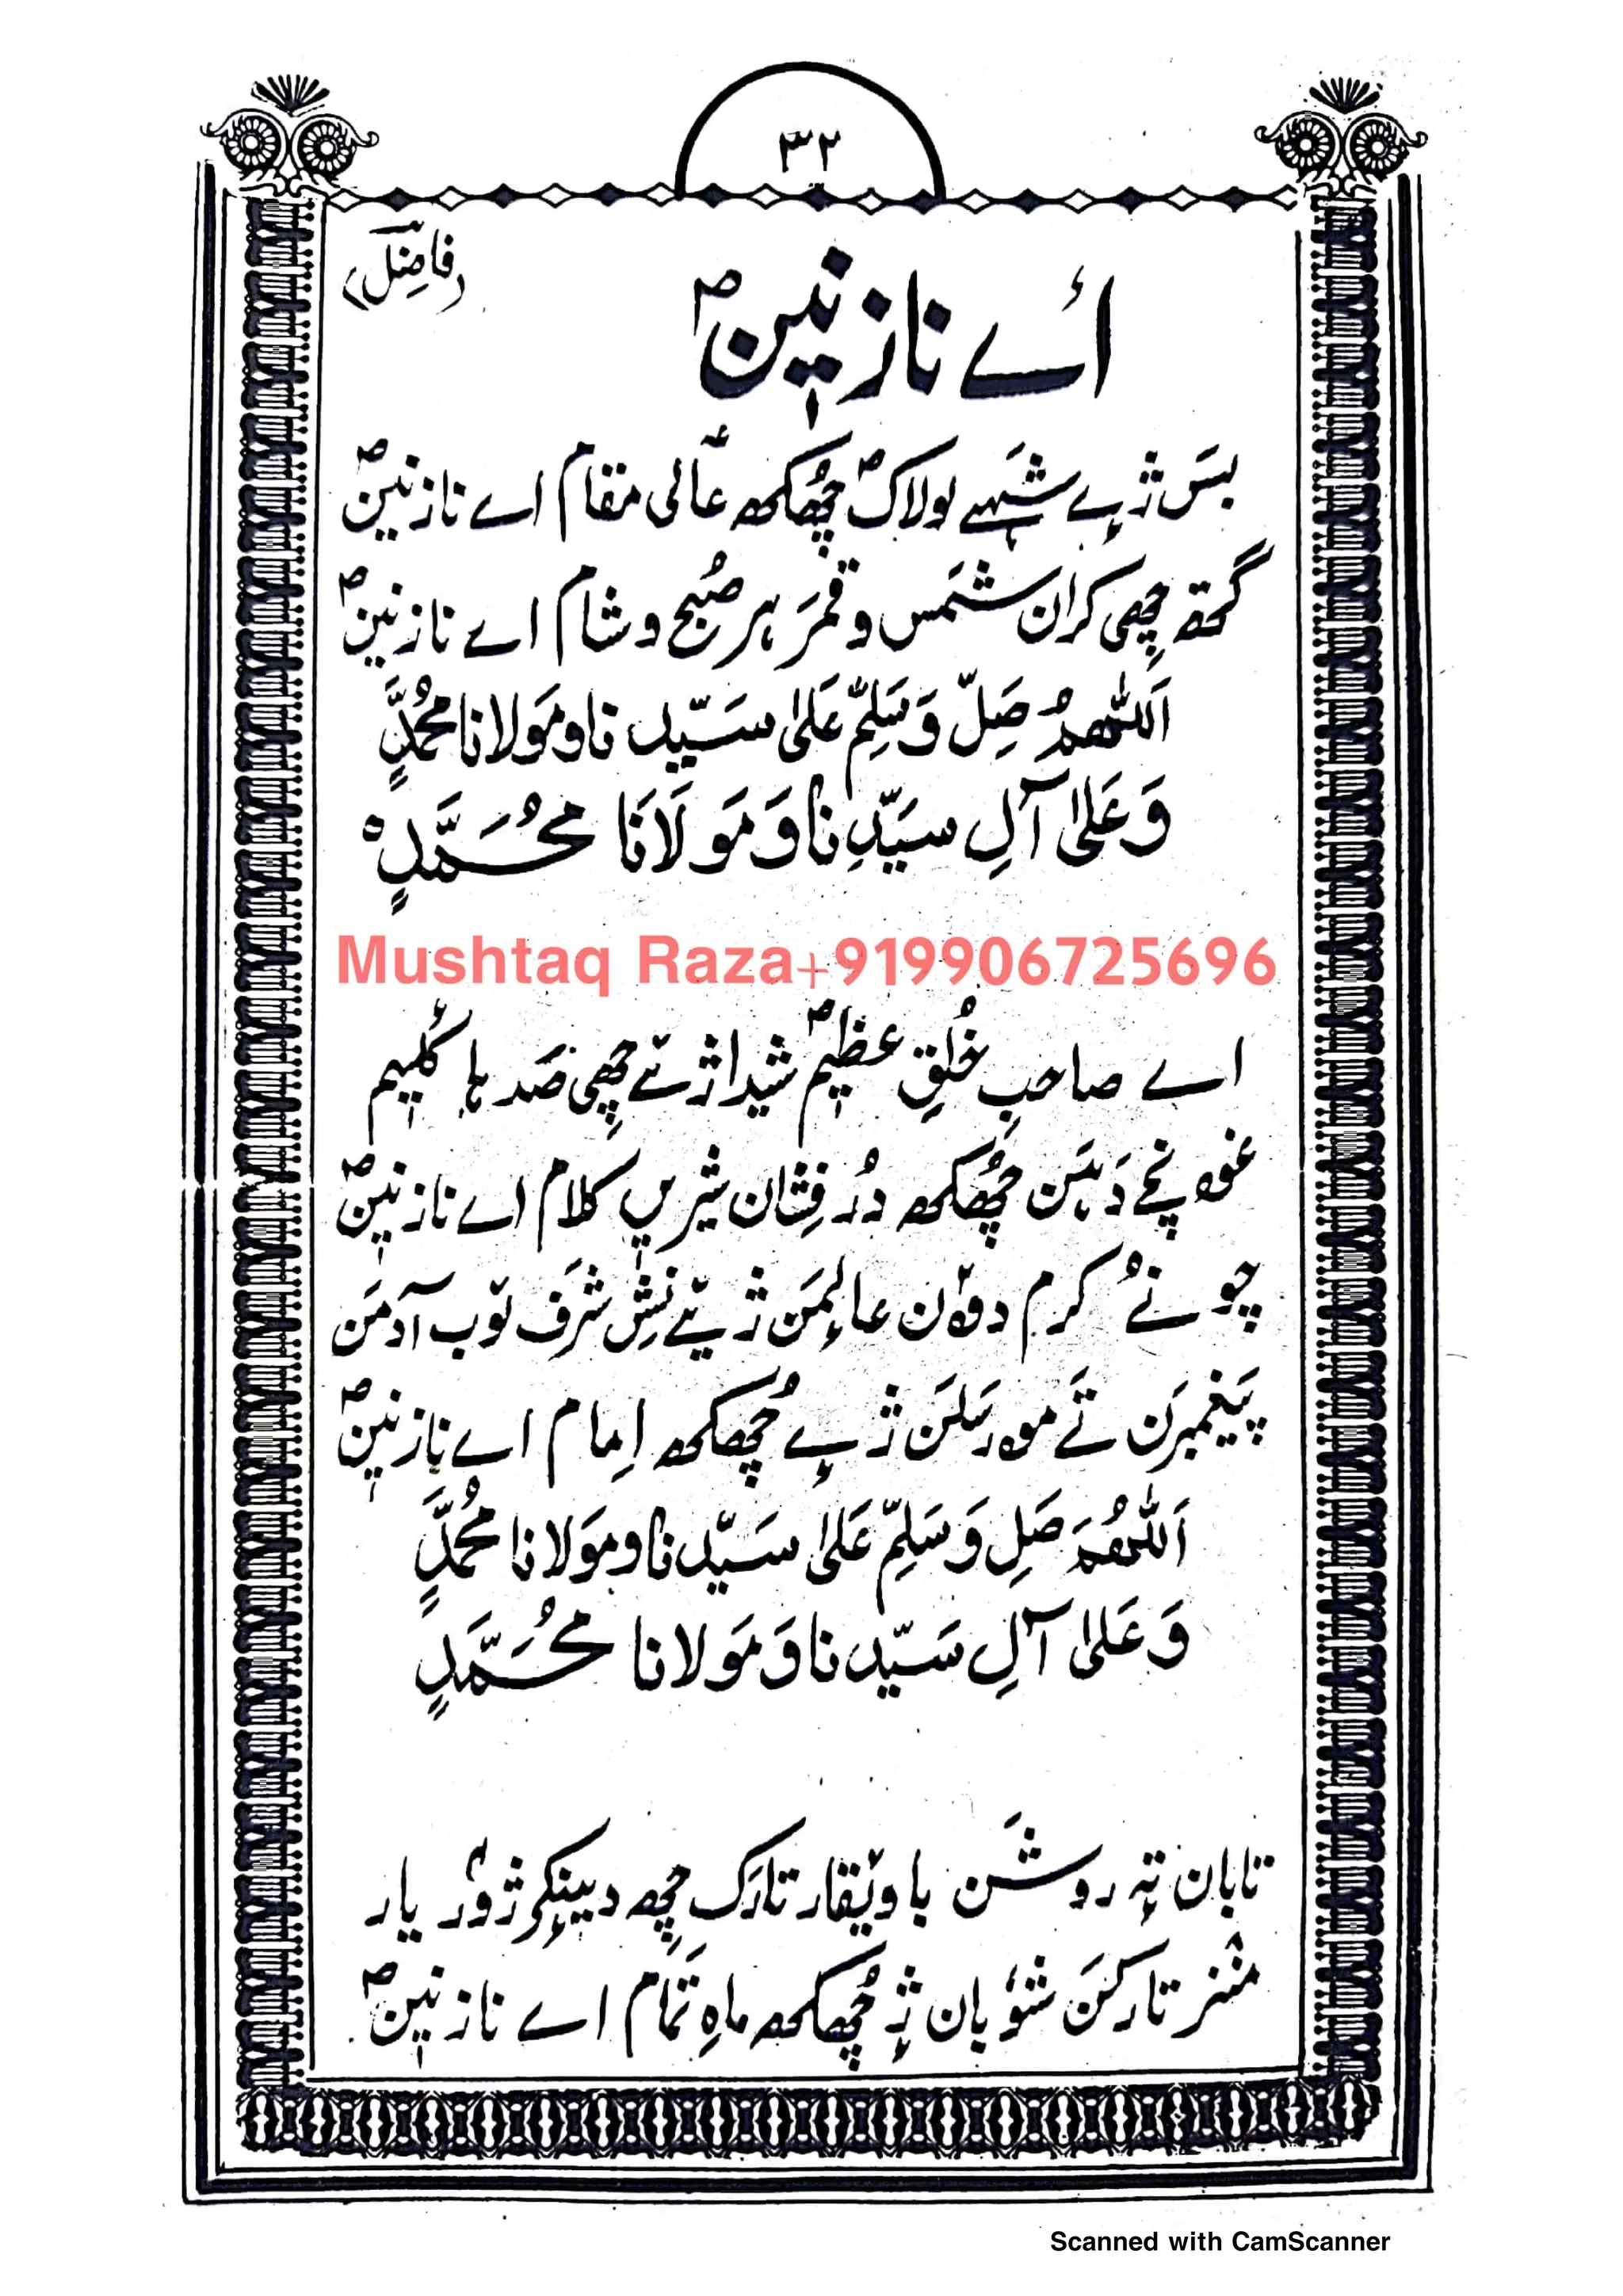 ۳۲
(فاضِلؔ)
اے نازنین ؐ
بسَ ژٕے شہے لولاکؐ چھُکھ عالی مقام اے نازنینؐ
گتھ چھِی کران شمَس و قمَر ہر صُبح و شام اے نازنینؐ
اَللّٰھُمَّ صَلِّ وَسَلِّمْ عَلیٰ سَیّدِنا و مَولانا محُمَّدٍ
وَعَلیٰ آلِ سیَدِّنا وَ مَولَانَا محُمَّدٍ ہ
Mushtaq Raza+919906725696
اے صاحبِ خُلقِ عظیٖمؐ شیدا ژےٚ چھِی صَد ہا کلیٖم
غۄنچے دَہَن چھُکھ دُر فِشان شیٖریں کلام اے نازنیٖنؐ
چونےُ کرم دۄن عالَمَن ژےٚ نِش شرَف لوٚب آدمَن
پیَغمبرَن تَے مۄرسَلَن ژٕے چھُکھ اِمام اے نازنیٖنؐ
اَللّٰھُمَّ صَلِ وَسَلِّمْ عَلیٰ سَیّدِنا و مَولانا محُمَّدٍ
وَعَلیٰ آلِ سَیّدِنا وَ مَولانا محُمَّدٍ
تابان تہٕ روشَن با وقار تارَکھ چھِ دیٖنکۍ ژۆر یار
منٛز تارکَن شوٗبان ژٕ چھُکھ ماہِ تمَام اے نازنیٖنؐ
Scanned with CamScanner